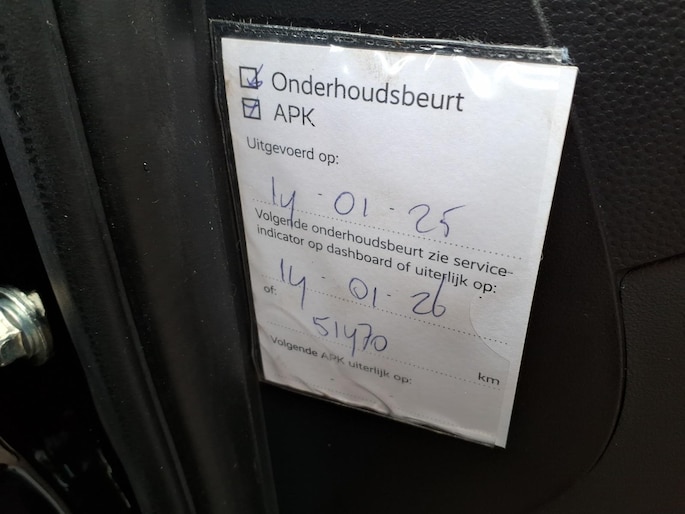 Onderhoudsbeurt
APK
Uitgevoerd op:
14-01-25
Volgende onderhoudsbeurt zie service-
indicator op dashboard of uiterlijk op:
14-01-26
of:
51470
km
Volgende APK uiterlijk op: